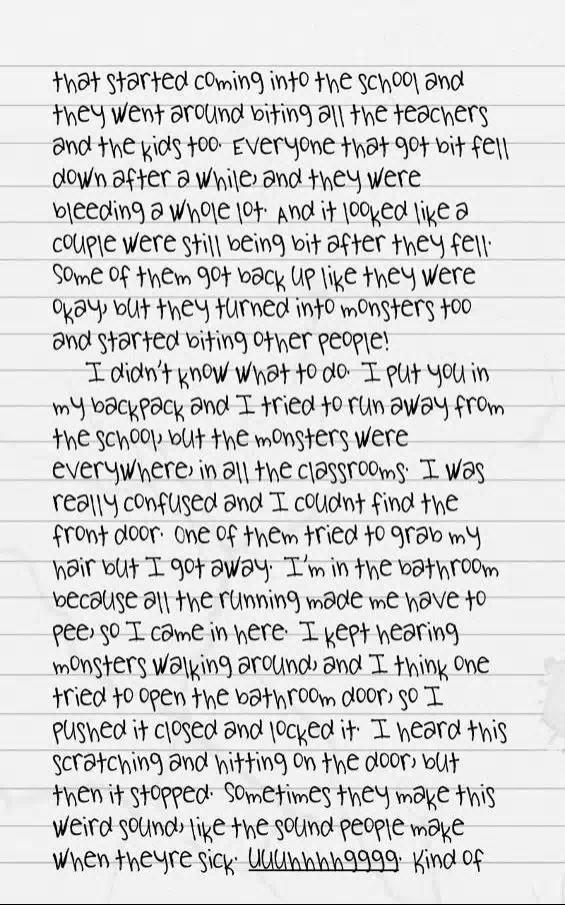 that started coming into the school and
they went around biting all the teachers
and the kids too. Everyone that got bit fell
down after a while, and they were
bleeding a whole lot. And it looked like a
couple were still being bit after they fell.
Some of them got back up like they were
okay, but they turned into monsters too
and started biting other people!
I didn't know what to do. I put you in
my backpack and I tried to run away from
the school, but the monsters were
everywhere, in all the classrooms. I was
really confused and I coudnt find the
front door. One of them tried to grab my
hair but I got away. I'm in the bathroom
because all the running made me have to
pee, so I came in here. I kept hearing
monsters walking around, and I think one
tried to open the bathroom door, so I
pushed it closed and locked it. I heard this
scratching and hitting on the door, but
then it stopped. Sometimes they make this
weird sound, like the sound people make
when theyre sick. Uuuhhhhgggg. Kind of